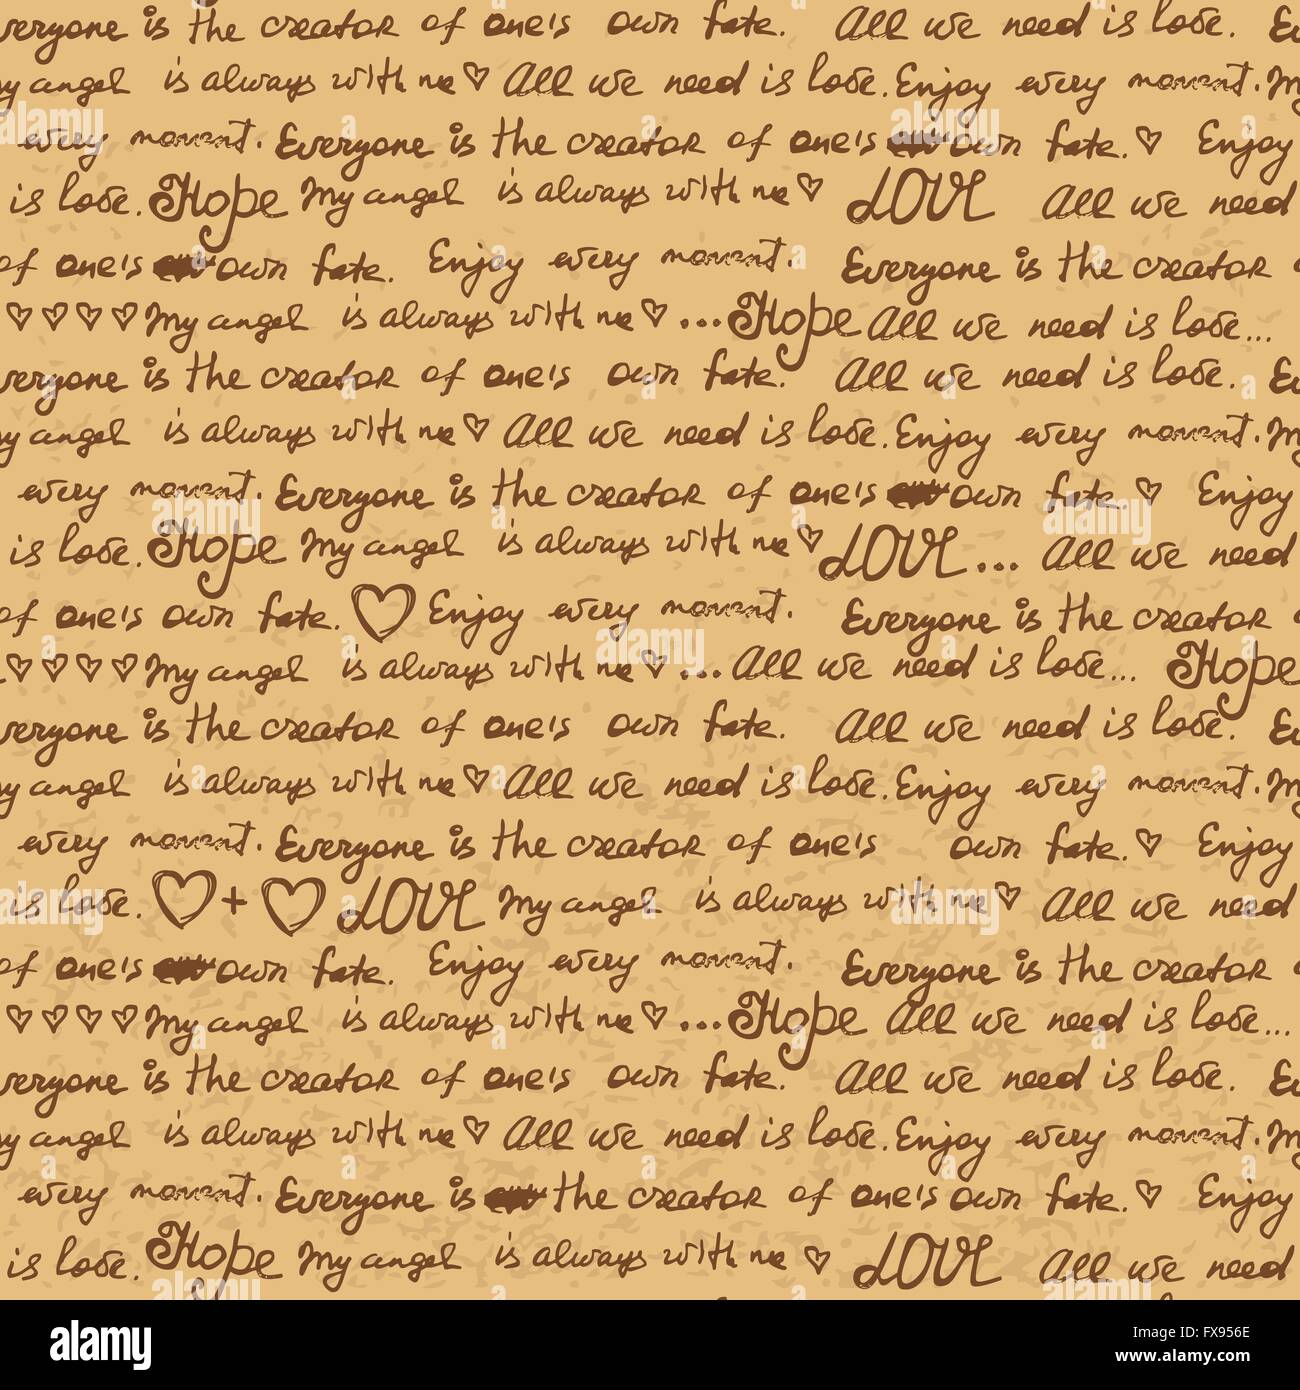 veryone is the creator of one's own fate. All we need is love. Ev
my angel is always with me♡ All we need is love. Enjoy every moment. My
every moment. Everyone is the creator of one's own fate.♡ Enjoy
is love. Hope My angel is always with me♡ LOVE All we need
of one's own fate. Enjoy every moment. Everyone is the creator
♡♡♡♡ My angel is always with me♡... Hope All we need is love...
veryone is the creator of one's own fate. All we need is love. Ev
my angel is always with me♡ All we need is love. Enjoy every moment. My
every moment. Everyone is the creator of one's own fate.♡ Enjoy
is love. Hope My angel is always with me♡ LOVE... All we need
of one's own fate. ♡ Enjoy every moment. Everyone is the creator
♡♡♡♡ My angel is always with me♡... All we need is love... Hope
veryone is the creator of one's own fate. All we need is love. Ev
my angel is always with me♡ All we need is love. Enjoy every moment. My
every moment. Everyone is the creator of one's own fate.♡ Enjoy
is love. ♡+♡ LOVE My angel is always with me♡ All we need
of one's own fate. Enjoy every moment. Everyone is the creator
♡♡♡♡ My angel is always with me♡... Hope All we need is love...
veryone is the creator of one's own fate. All we need is love. Ev
my angel is always with me♡ All we need is love. Enjoy every moment. My
every moment. Everyone is the creator of one's own fate.♡ Enjoy
is love. Hope My angel is always with me♡ LOVE All we need
alamy
Image ID: FX956E
www.alamy.com